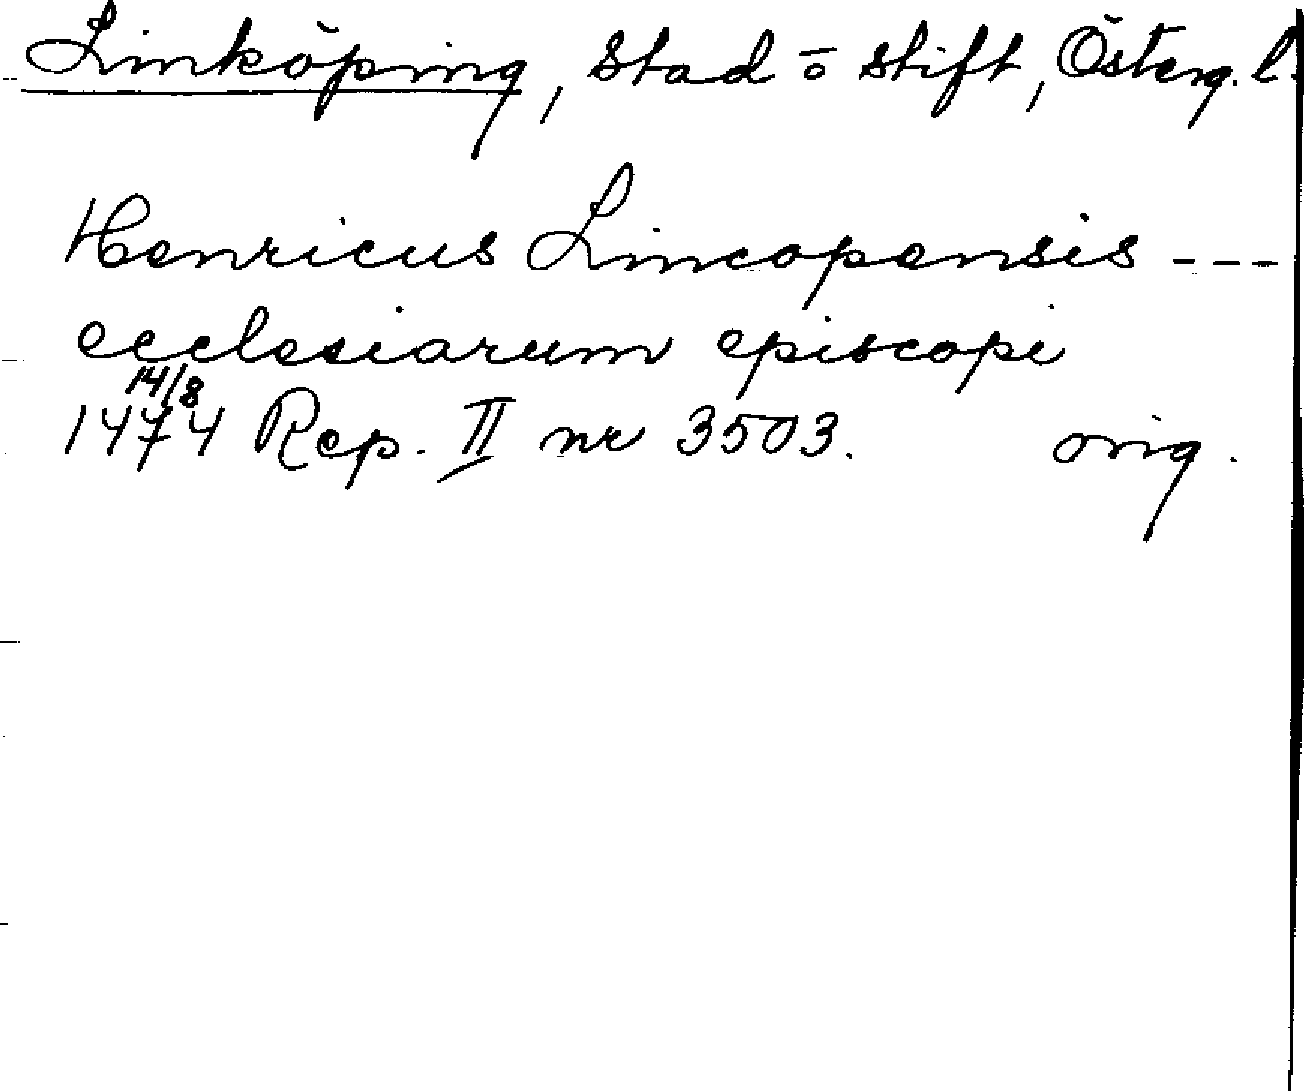 Linköping, stad o stift, Österg. l.
Henricus Lincopensis ---
ecclesiarum episcopi
14/8
1474 Rep. II nr 3503. orig.